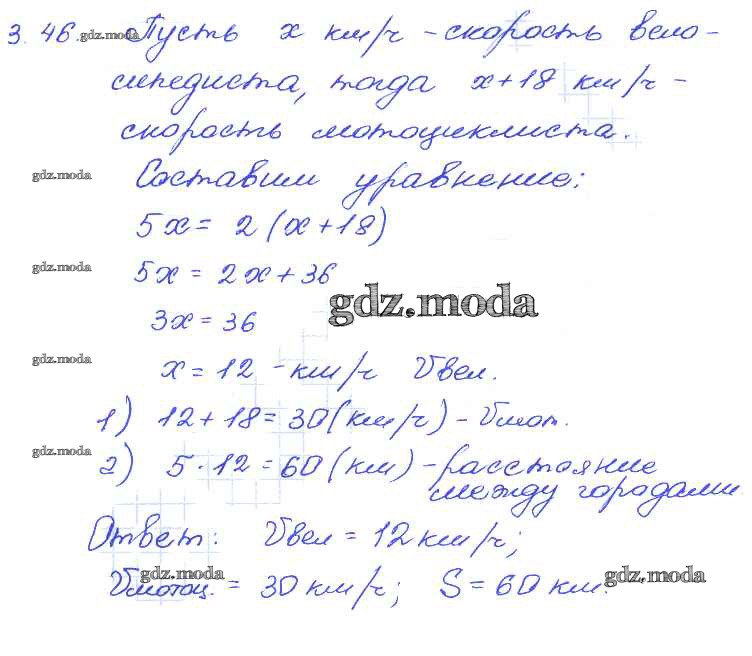 3.46. gdz.moda Пусть x км/ч - скорость вело-
сипедиста, тогда x+18 км/ч -
скорость мотоциклиста.
gdz.moda Составим уравнение:
5x = 2(x+18)
gdz.moda 5x = 2x+36
gdz.moda
3x = 36
gdz.moda x = 12 - км/ч Vвел.
1) 12+18 = 30(км/ч) - Vмот.
gdz.moda
2) 5·12 = 60(км) - расстояние
между городами
Ответ: Vвел = 12 км/ч;
Vмотоц. = 30 км/ч; S = 60 км.
gdz.moda gdz.moda